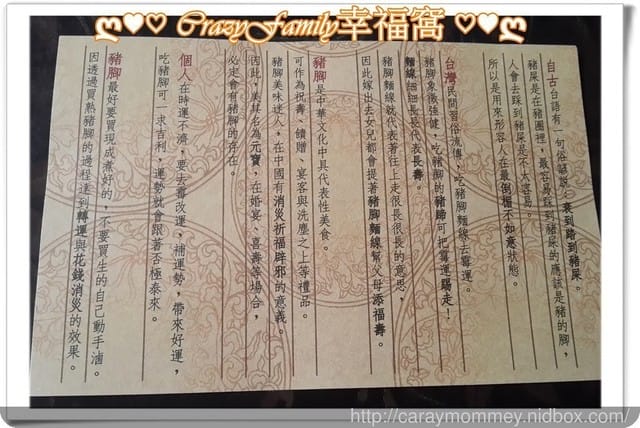 CrazyFamily幸福窩
自古台語有一句俗話說：衰到踏到豬屎。
豬屎是在豬圈裡，最容易踩到豬屎的應該是豬的腳，
人會去踩到豬屎是不太容易。
所以是用來形容人在最倒楣不如意狀態。
台灣民間習俗流傳，吃豬腳麵線，去霉運。
豬腳象徵強健，吃豬腳的豬蹄可把霉運踢走！
麵線細細長長代表長壽。
豬腳麵線就代表著往上走很長很長的意思，
因此嫁出去女兒都會提著豬腳麵線幫父母添福壽。
豬腳是中華文化中具代表性美食。
可作為祝壽、饋贈、宴客與洗塵之上等禮品。
豬腳美味迷人，在中國有消災祈福辟邪的意義。
因此，美其名為元寶，在婚宴、喜壽等場合，
必定會有豬腳的存在。
個人在時運不濟，要去霉改運、補運勢，帶來好運，
吃豬腳可一求吉利，運勢就會跟著否極泰來。
豬腳最好要買現成煮好的，不要買生的自己動手滷。
因透過買熟豬腳的過程達到轉運與花錢消災的效果。
http://caraymommey.nidbox.com/